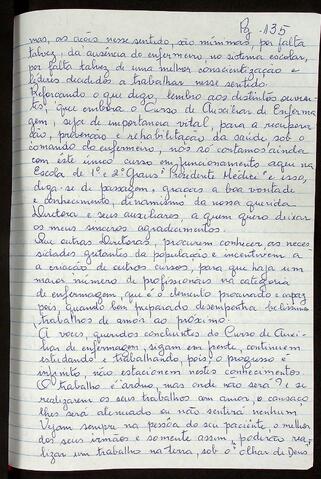 Pg. 135
mas, as ações nesse sentido, são mínimas, por falta
talvez, da ausência do enfermeiro, no sistema escolar,
por falta talvez de uma melhor conscientização e
líderes decididos a trabalhar nesse sentido.
Reforçando o que digo, lembro aos distintos ouvin-
tes, que embora o Curso de Auxiliar de Enferma
gem, seja de importância vital, para a recupera
ção, prevenção e rehabilitação da saúde, sob o
comando do enfermeiro, nós só contamos ainda
com este único curso em funcionamento aqui na
Escola de 1º e 2º Graus "Presidente Médici" e isso,
diga-se de passagem, graças a boa vontade
e conhecimento, dinamismo da nossa querida
Diretora e seus auxiliares, a quem quero deixar
os meus sinceros agradecimentos.
Que outras Diretoras, procurem conhecer as neces
sidades gritantes da população e incentivem a
a criação de outros cursos, para que haja um
maior número de profissionais na categoria
de enfermagem, que é o elemento procurado e capaz
pois, quando bem preparado desempenha belíssimos
trabalhos de amor ao próximo.
A vocês, queridos concluintes do Curso de Auxi-
liar de enfermagem, sigam em frente, continuem
estudando e trabalhando, pois o progresso é
infinito, não estacionem nestes conhecimentos.
O trabalho é árduo, mas onde não será? e se
realizarem os seus trabalhos com amor, o cansaço
lhes será atenuado ou não sentirá nenhum.
Vejam sempre na pessoa do seu paciente, o melhor
dos seus irmãos e somente assim, poderão rea
lizar um trabalho na terra, sob o olhar de Deus